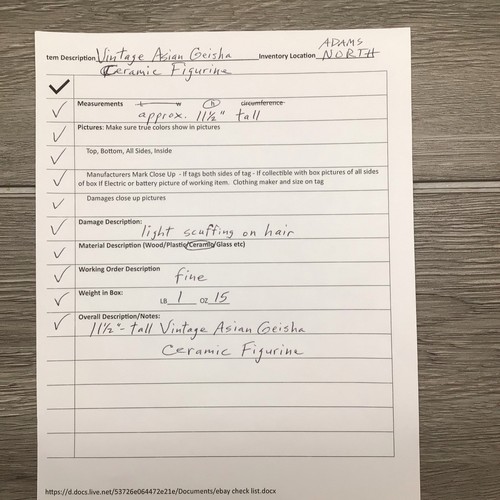 ADAMS
tem Description Vintage Asian Geisha Inventory Location NORTH
Ceramic Figurine
Measurements L W H circumference
approx. 11½" tall
Pictures: Make sure true colors show in pictures
Top, Bottom, All Sides, Inside
Manufacturers Mark Close Up - If tags both sides of tag - If collectible with box pictures of all sides
of box If Electric or battery picture of working item. Clothing maker and size on tag
Damages close up pictures
Damage Description:
light scuffing on hair
Material Description (Wood/Plastic/Ceramic/Glass etc)
Working Order Description
fine
Weight in Box:
LB 1 OZ 15
Overall Description/Notes:
11½"- tall Vintage Asian Geisha
Ceramic Figurine
https://d.docs.live.net/53726e064472e21e/Documents/ebay check list.docx